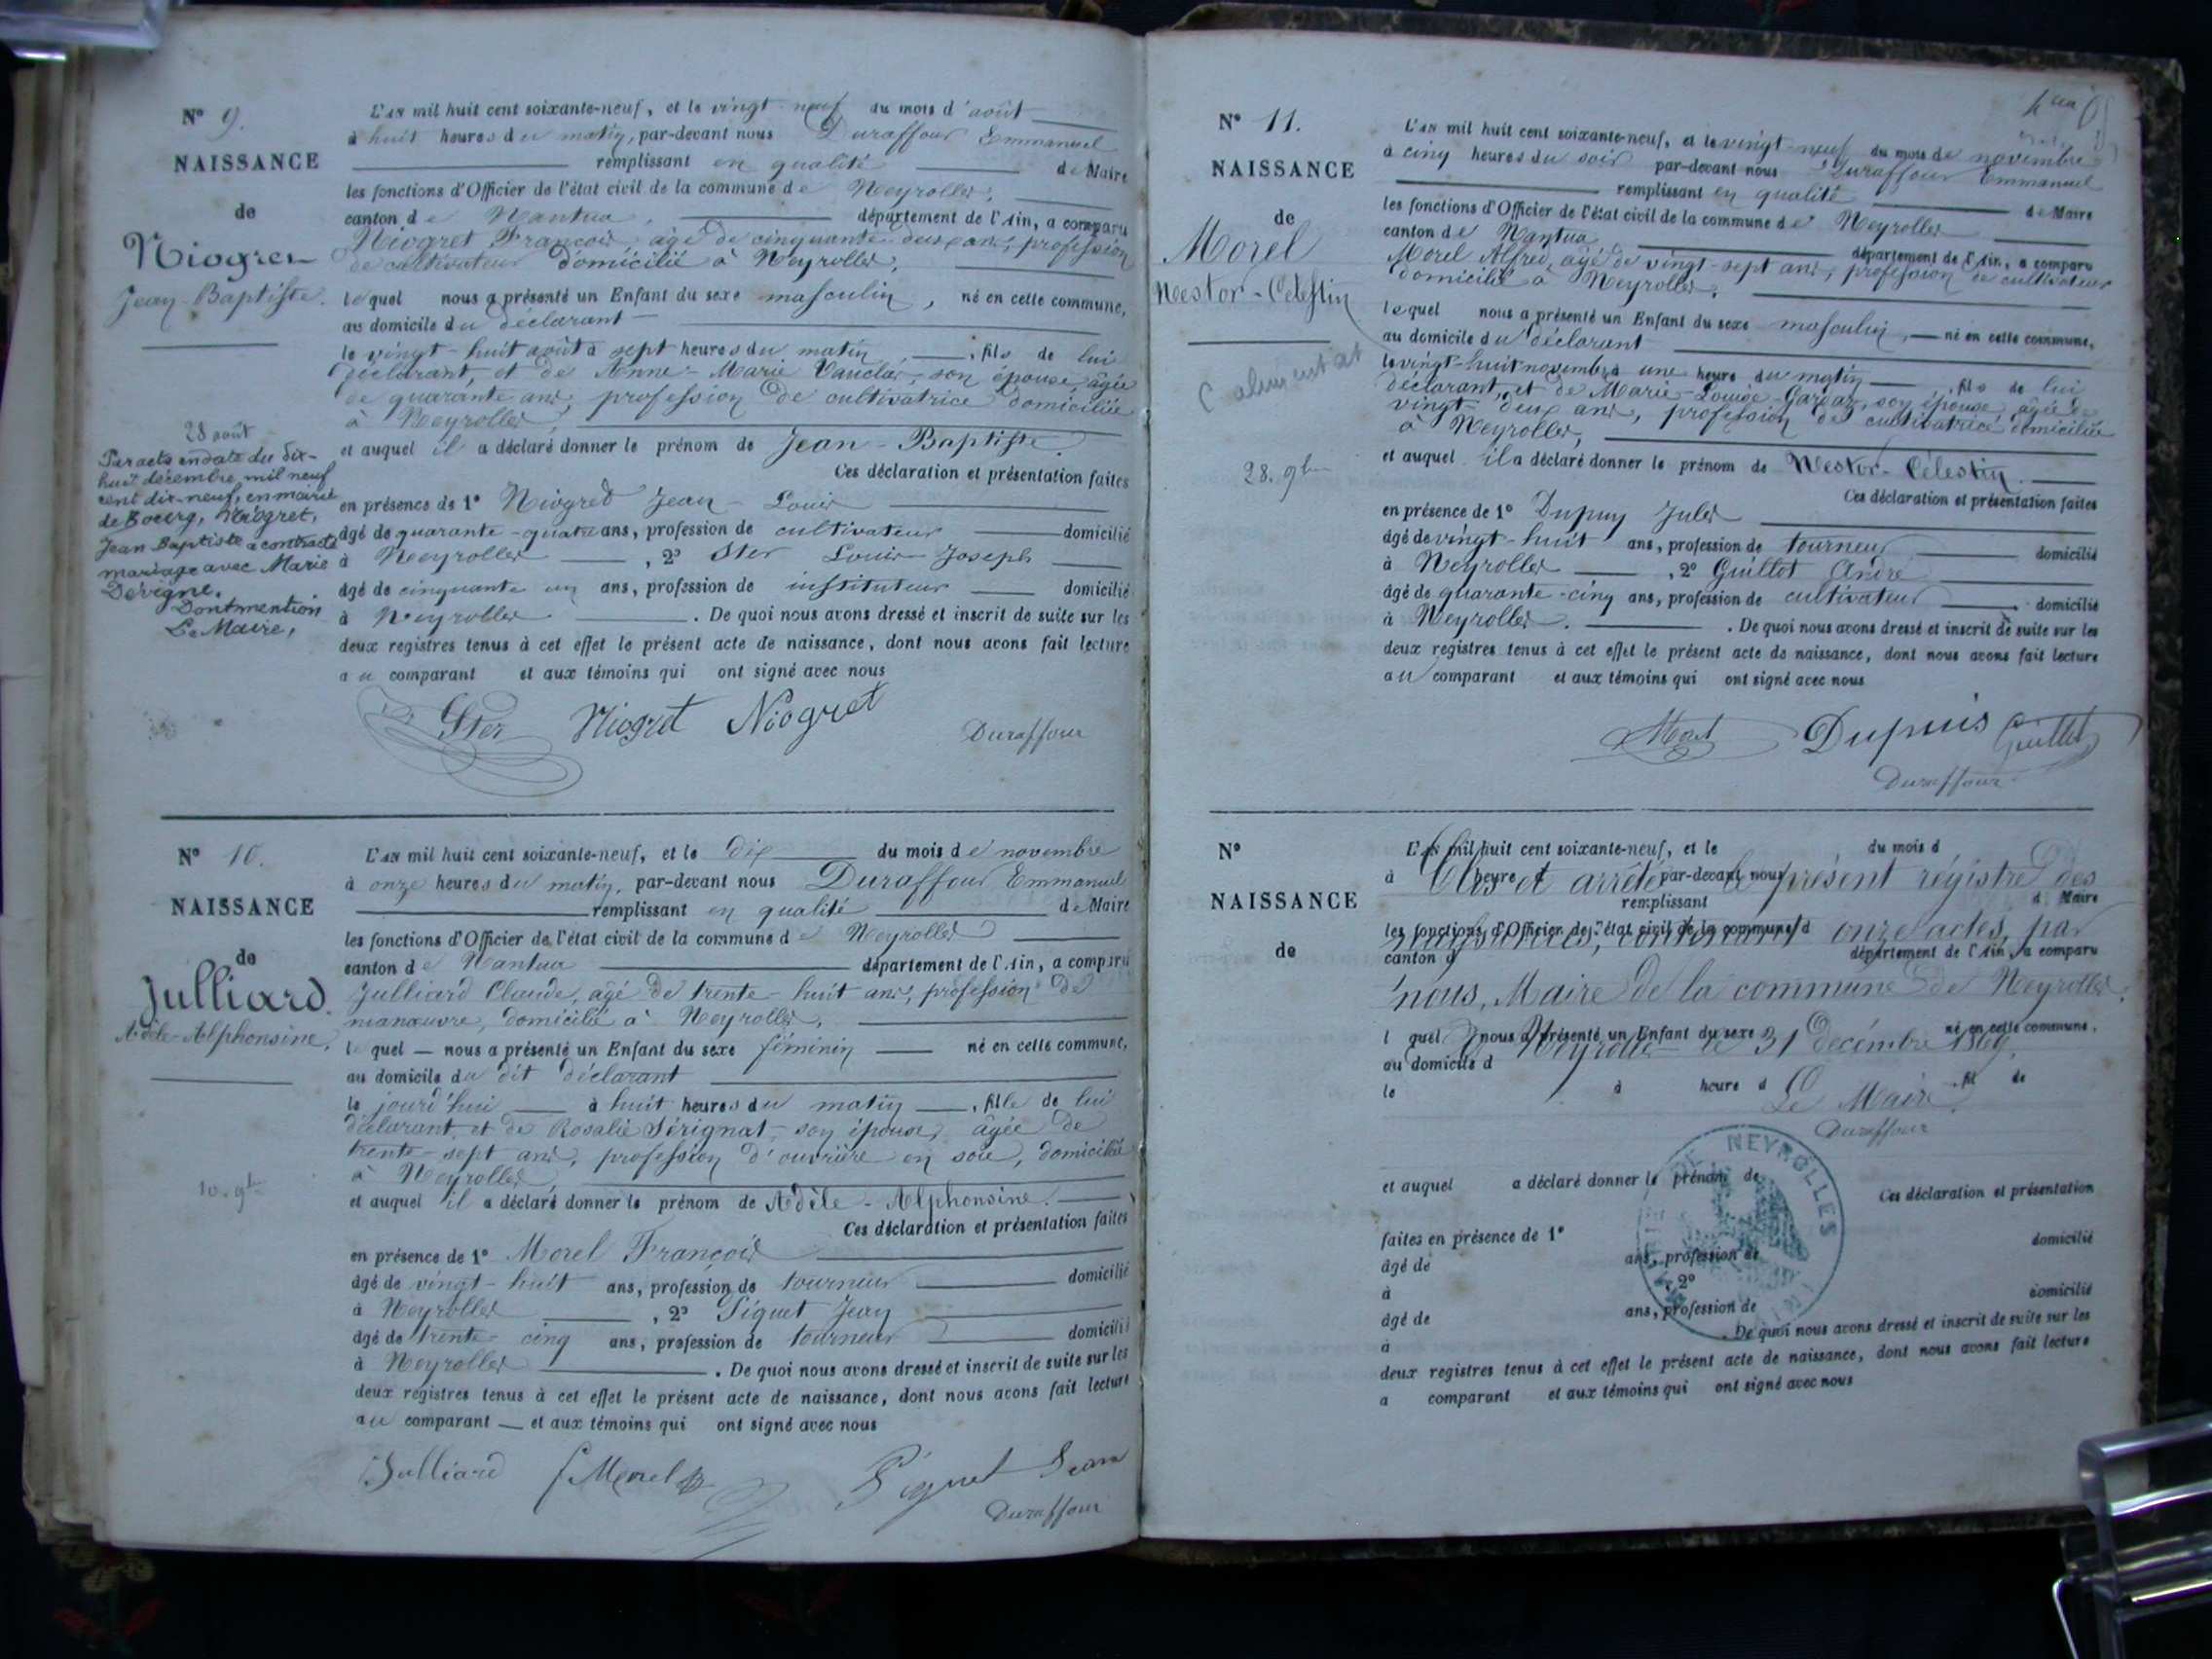 N° 9.
NAISSANCE
de
Niogret
Jean-Baptiste.
28 août
Par acte en date du dix-
huit décembre mil neuf
cent dix-neuf, en mairie
de Bourg, Niogret,
Jean Baptiste a contracté
mariage avec Marie
Dévigne.
Dont mention
Le Maire,
L'AN mil huit cent soixante-neuf, et le vingt-neuf du mois d'août
à huit heures du matin, par-devant nous Duraffour Emmanuel
remplissant en qualité de Maire
les fonctions d'Officier de l'état civil de la commune de Neyrolles,
canton de Nantua, département de l'Ain, a comparu
Niogret François, âgé de cinquante-deux ans, profession
de cultivateur domicilié à Neyrolles,
lequel nous a présenté un Enfant du sexe masculin, né en cette commune,
au domicile du déclarant
le vingt-huit août à sept heures du matin, fils de lui
déclarant, et de Anne-Marie Vauclar, son épouse, âgée
de quarante ans, profession de cultivatrice domiciliée
à Neyrolles,
et auquel il a déclaré donner le prénom de Jean-Baptiste.
Ces déclaration et présentation faites
en présence de 1° Niogret Jean-Louis
âgé de quarante-quatre ans, profession de cultivateur domicilié
à Neyrolles, 2° Ster Louis Joseph
âgé de cinquante un ans, profession de instituteur domicilié
à Neyrolles. De quoi nous avons dressé et inscrit de suite sur les
deux registres tenus à cet effet le présent acte de naissance, dont nous avons fait lecture
au comparant et aux témoins qui ont signé avec nous
Ster Niogret Niogret Duraffour
N° 10.
NAISSANCE
de
Julliard.
Adèle-Alphonsine.
10. 9bre
L'AN mil huit cent soixante-neuf, et le dix du mois de novembre
à onze heures du matin, par-devant nous Duraffour Emmanuel
remplissant en qualité de Maire
les fonctions d'Officier de l'état civil de la commune de Neyrolles
canton de Nantua département de l'Ain, a comparu
Julliard Claude, âgé de trente-huit ans, profession de
manœuvre, domicilié à Neyrolles,
lequel nous a présenté un Enfant du sexe féminin né en cette commune,
au domicile du dit déclarant
le jourd'hui à huit heures du matin, fille de lui
déclarant, et de Rosalie Sérignat, son épouse, âgée de
trente-sept ans, profession d'ouvrière en soie, domiciliée
à Neyrolles,
et auquel il a déclaré donner le prénom de Adèle-Alphonsine.
Ces déclaration et présentation faites
en présence de 1° Morel François
âgé de vingt-huit ans, profession de tourneur domicilié
à Neyrolles, 2° Piguet Jean
âgé de trente-cinq ans, profession de tourneur domicilié
à Neyrolles. De quoi nous avons dressé et inscrit de suite sur les
deux registres tenus à cet effet le présent acte de naissance, dont nous avons fait lecture
au comparant et aux témoins qui ont signé avec nous
Julliard f. Morel Piguet Jean
Duraffour
N° 11.
NAISSANCE
de
Morel
Nestor-Célestin
28. 9bre
L'AN mil huit cent soixante-neuf, et le vingt-neuf du mois de novembre
à cinq heures du soir par-devant nous Duraffour Emmanuel
remplissant en qualité de Maire
les fonctions d'Officier de l'état civil de la commune de Neyrolles
canton de Nantua département de l'Ain, a comparu
Morel Alfred, âgé de vingt-sept ans, profession de cultivateur
domicilié à Neyrolles.
lequel nous a présenté un Enfant du sexe masculin, né en cette commune,
au domicile du déclarant
le vingt-huit novembre à une heure du matin, fils de lui
déclarant, et de Marie-Louise, son épouse, âgée de
vingt-deux ans, profession de cultivatrice domiciliée
à Neyrolles,
et auquel il a déclaré donner le prénom de Nestor-Célestin
Ces déclaration et présentation faites
en présence de 1° Dupuy Jules
âgé de vingt-huit ans, profession de tourneur domicilié
à Neyrolles, 2° Guillot André
âgé de quarante-cinq ans, profession de cultivateur domicilié
à Neyrolles. De quoi nous avons dressé et inscrit de suite sur les
deux registres tenus à cet effet le présent acte de naissance, dont nous avons fait lecture
au comparant et aux témoins qui ont signé avec nous
Morel Dupuis Guillot
Duraffour
N°
NAISSANCE
de
L'AN mil huit cent soixante-neuf, et le du mois d
à heure d par-devant nous
Clos et arrêté le présent régistre des
remplissant d Maire
les fonctions d'Officier de l'état civil de la commune d
naissances, contenant onze actes, par
canton d département de l'Ain, a comparu
nous, Maire de la commune de Neyrolles.
l quel nous a présenté un Enfant du sexe né en cette commune,
Neyrolles le 31 décembre 1869.
au domicile d
le à heure d fil de
Le Maire
Duraffour
MAIRIE DE NEYROLLES
et auquel a déclaré donner le prénom de
Ces déclaration et présentation
faites en présence de 1°
âgé de ans, profession de domicilié
à , 2°
âgé de ans, profession de domicilié
à . De quoi nous avons dressé et inscrit de suite sur les
deux registres tenus à cet effet le présent acte de naissance, dont nous avons fait lecture
a comparant et aux témoins qui ont signé avec nous